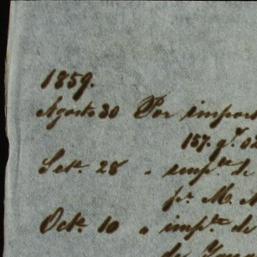 1859.
Agosto 30 Por import
157. q.s 02
Set.e 28 " imp.te de
p.r M. A
Oct.e 10 " imp.te de
de